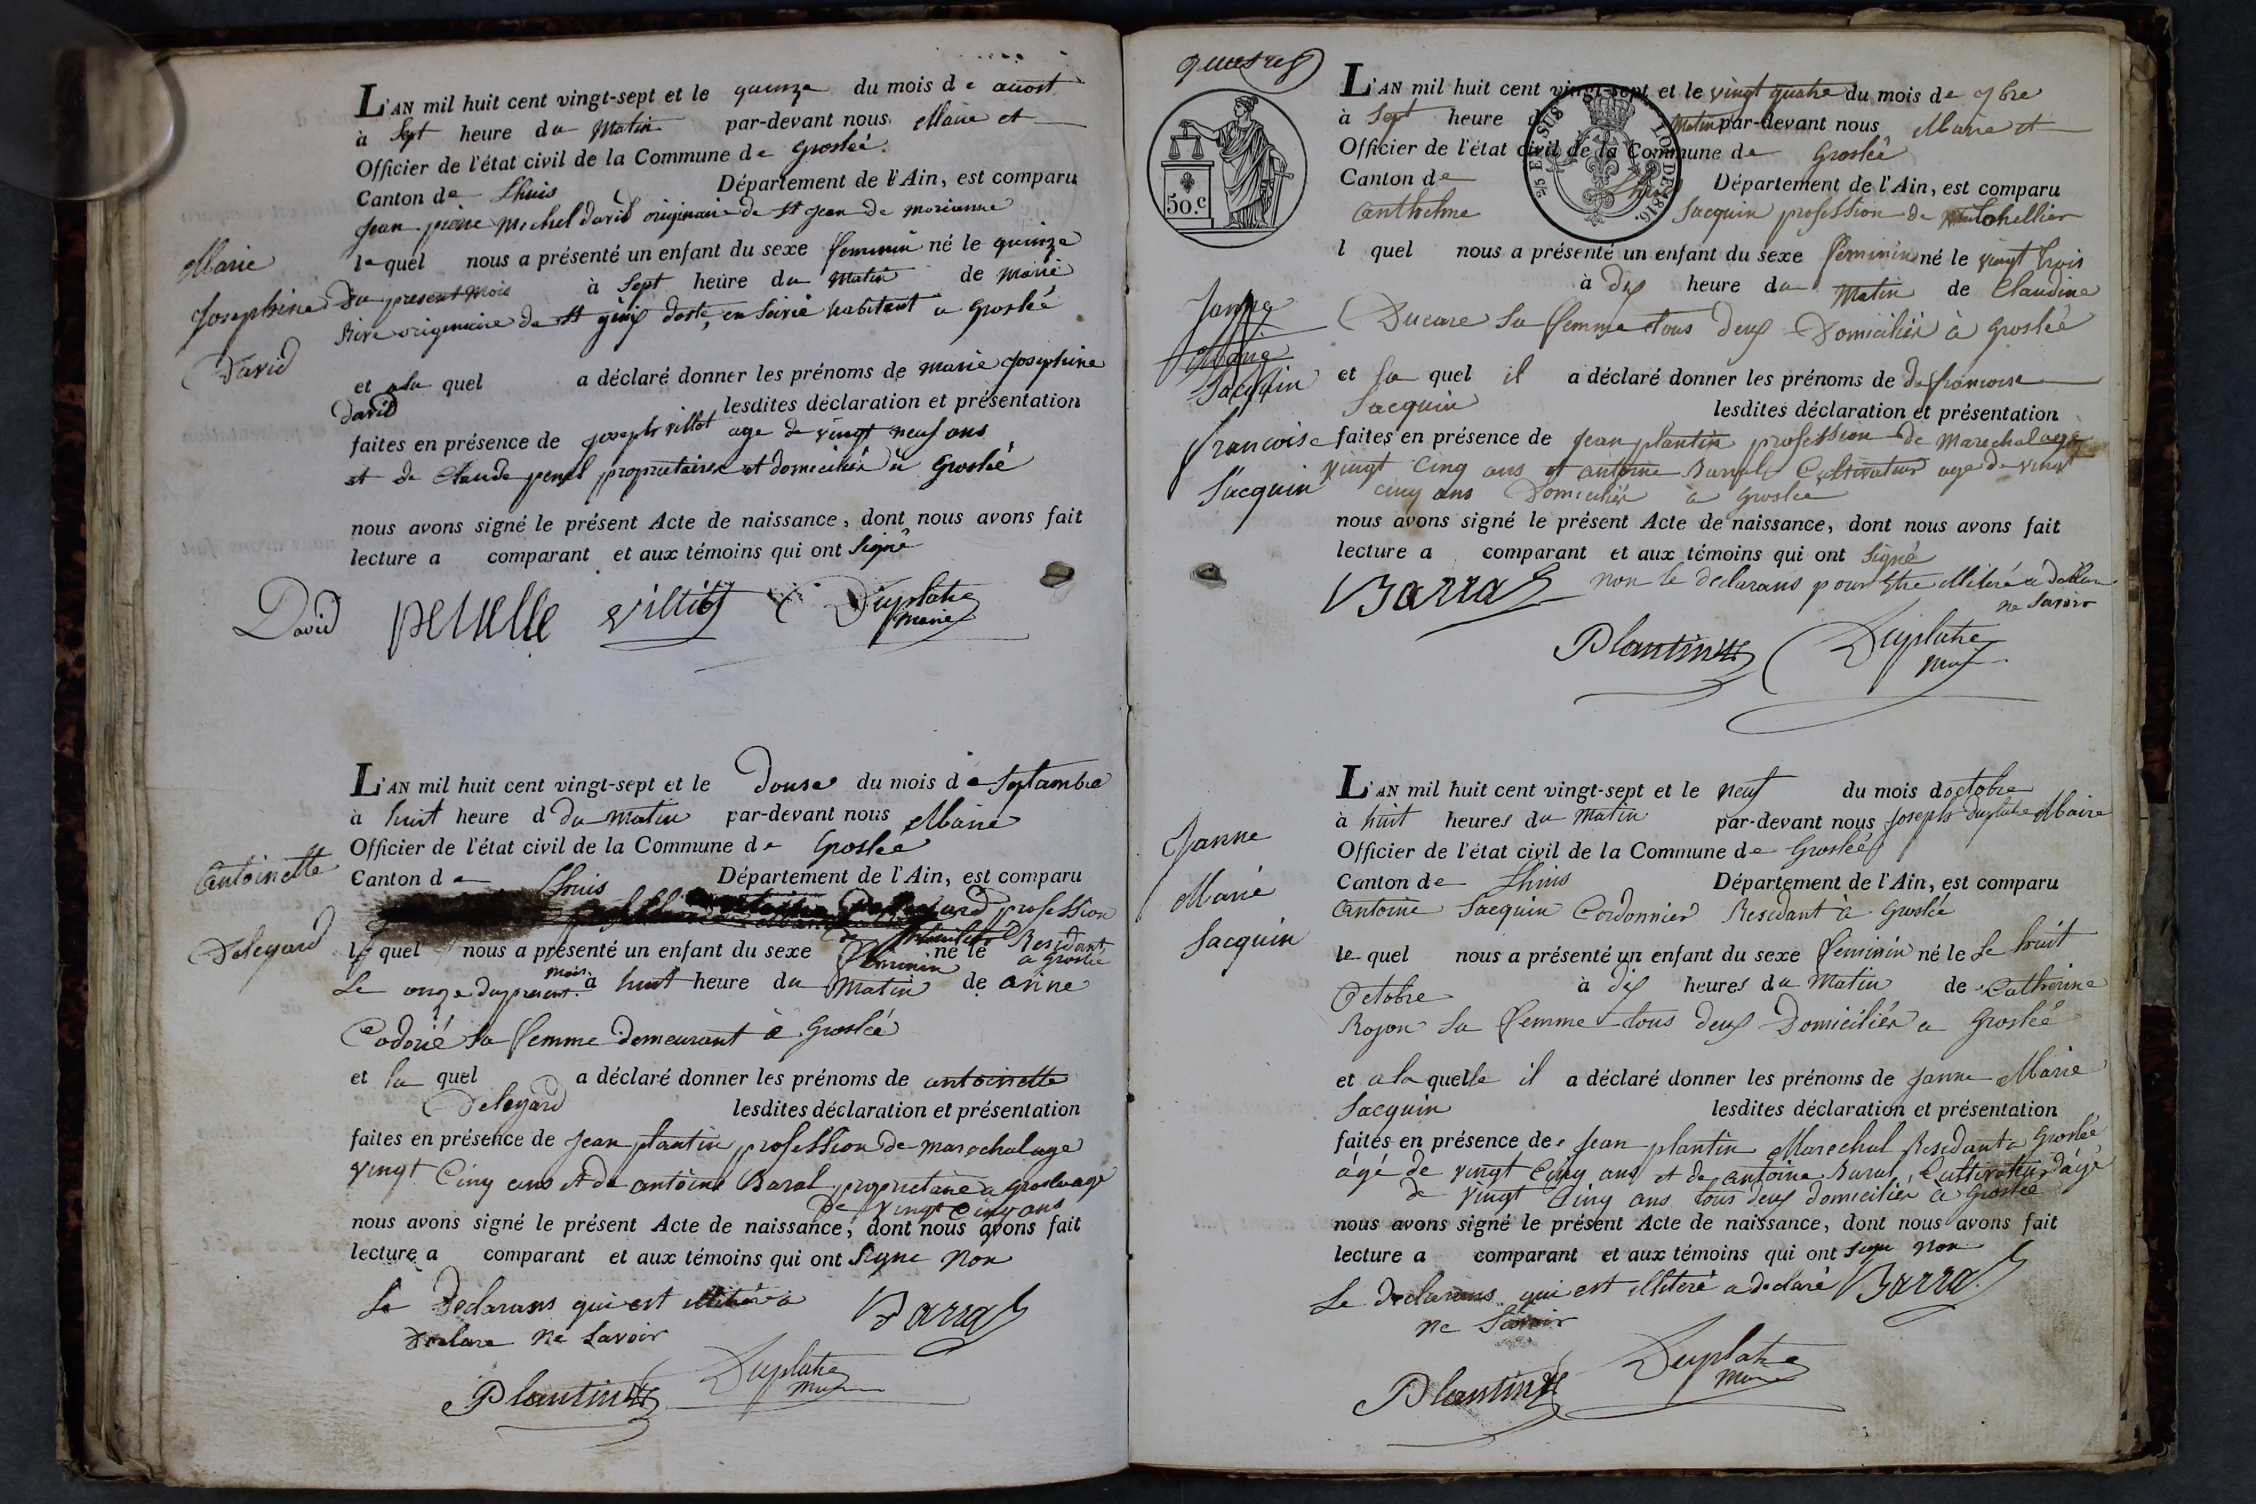 L'AN mil huit cent vingt-sept et le quinze du mois de auost
à sept heure du Matin par-devant nous Maire et
Officier de l'état civil de la Commune de Groslée.
Canton de Lhuis Département de l'Ain, est comparu
Jean pierre Michel david originaire de st Jean de morianne
le quel nous a présenté un enfant du sexe feminin né le quinze
Marie
Josephine
David
Du present Mois à sept heure du Matin de marie
Rive origenaire de st genix doste, en Savoie habitant a Groslée
et a la quel a déclaré donner les prénoms de marie Josephine
david lesdites déclaration et présentation
faites en présence de joseph villot age de vingt neuf ans
et de Claude penel proprietaires et domiciliés à Groslée
nous avons signé le présent Acte de naissance, dont nous avons fait
lecture a comparant et aux témoins qui ont signé
David villiot Duplatre
Maire
L'AN mil huit cent vingt-sept et le Douse du mois de septambre
à huit heure d du matin par-devant nous Maire
Officier de l'état civil de la Commune de Groslée
Canton de Lhuis Département de l'Ain, est comparu
profession
Antoinette
Delegard
le quel nous a présenté un enfant du sexe feminin né le Residant
a Groslée
Le onze du present mois à huit heure du Matin de anne
sa femme demeurant à Groslée
et la quel a déclaré donner les prénoms de antoinette
Delegard lesdites déclaration et présentation
faites en présence de Jean plantin profession de marechal age
vingt Cinq ans et de antoine Baral proprietaire a Groslee age
De vingt cinq ans
nous avons signé le présent Acte de naissance, dont nous avons fait
lecture a comparant et aux témoins qui ont signe Non
Le Declarans qui est illiteré a
Declare ne savoir
Barral
Plantin Duplatre
Maire
50.c
EN SUS LOI DE 1816.
L'AN mil huit cent vingt-sept et le vingt quatre du mois de 7bre
à Sept heure d Matin par-devant nous Maire et
Officier de l'état civil de la Commune de Groslée
Canton de Lhuis Département de l'Ain, est comparu
Anthelme Jacquin profession de
l quel nous a présenté un enfant du sexe feminin né le vingt trois
à dix heure du Matin de Claudine
Janne
Marie
Jacquin
francoise
Jacquin
Ducare sa femme tous deux Domiciliér à Groslée
et la quel il a déclaré donner les prénoms de francoise
Jacquin lesdites déclaration et présentation
faites en présence de Jean plantin profession de Marechal age
vingt Cinq ans et antoine Barral Cultivateur age de vingt
cinq ans Domiciliér à Groslée
nous avons signé le présent Acte de naissance, dont nous avons fait
lecture a comparant et aux témoins qui ont signé
non le declarans pour Etre illiteré a declare
ne savoir
Barral
Plantin Duplatre
Maire
L'AN mil huit cent vingt-sept et le neuf du mois doctobre
à huit heures du matin par-devant nous Joseph Duplatre Maire
Officier de l'état civil de la Commune de Groslée
Canton de Lhuis Département de l'Ain, est comparu
Antoine Jacquin Cordonnier Residant à Groslée
Janne
Marie
Jacquin
le quel nous a présenté un enfant du sexe feminin né le Le huit
Octobre à dix heures du Matin de Catherine
Rojon sa femme tous deux Domiciliér a Groslée
et a la quelle il a déclaré donner les prénoms de Janne Marie
Jacquin lesdites déclaration et présentation
faites en présence de Jean plantin Marechal Residant a Groslée
âgé de vingt Cinq ans et de antoine Baral, Cultivateur dâgé
de vingt Cinq ans tous deux domiciliér à Groslée
nous avons signé le présent Acte de naissance, dont nous avons fait
lecture a comparant et aux témoins qui ont signe Non
Le declarans qui est illiteré a declaré
ne Savoir
Barral
Plantin Duplatre
Maire